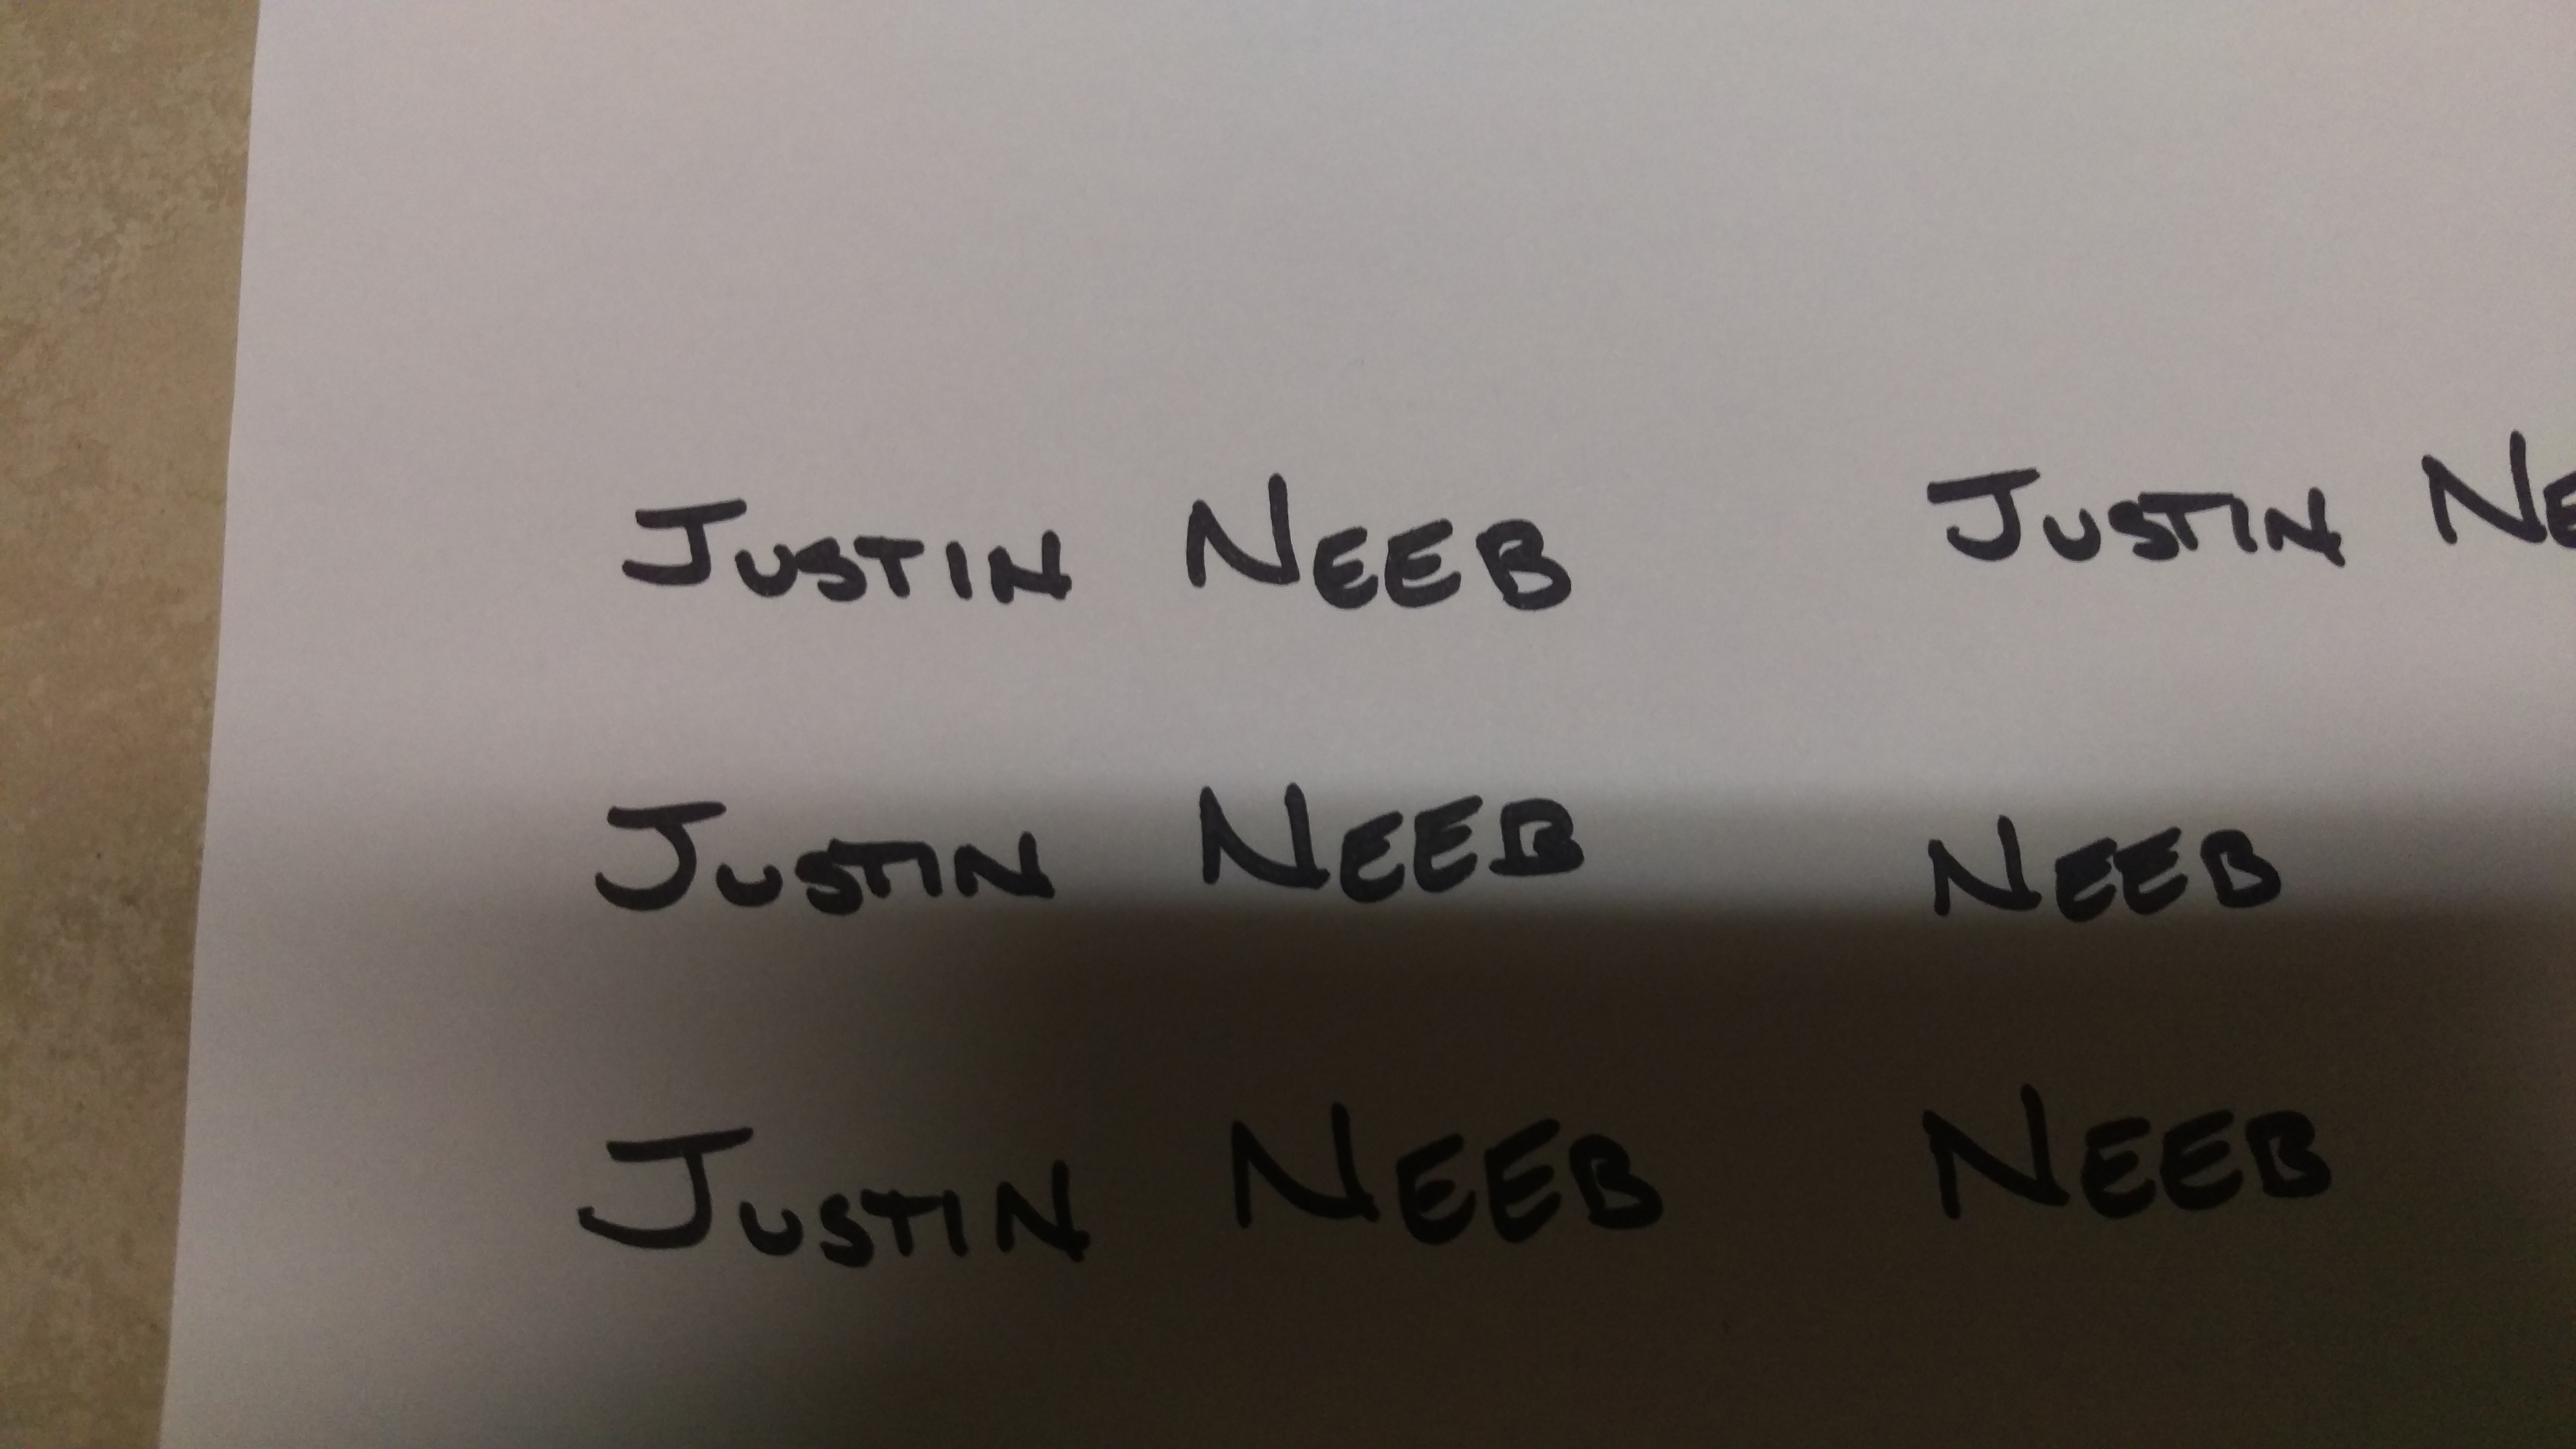 JUSTIN NEEB JUSTIN NE
JUSTIN NEEB NEEB
JUSTIN NEEB NEEB